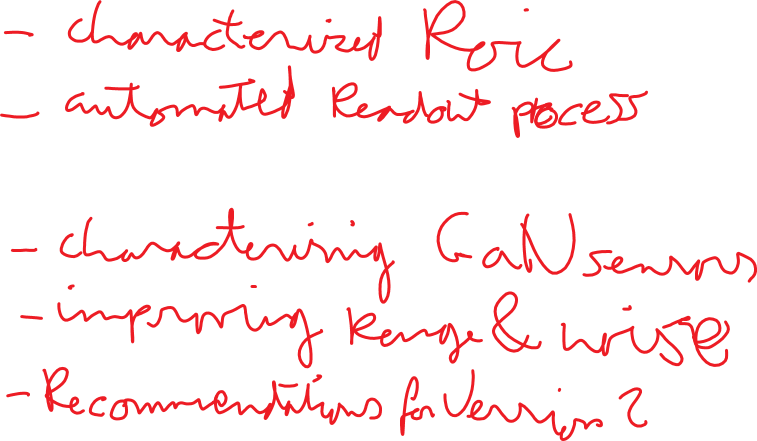 - characterized Roic
- automated Readout process
- characterizing GaN sensors
- improving Range & noise
- Recommendations for Version 2